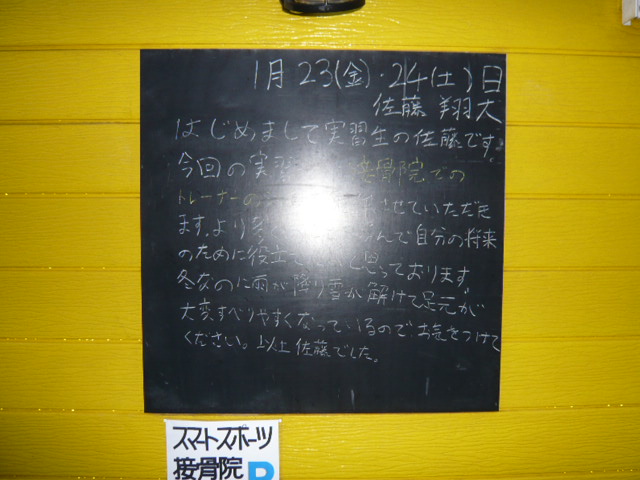 1月 23(金)・24(土)日
佐藤 翔大
はじめまして実習生の佐藤です。
今回の実習 接骨院での
トレーナーの させていただき
ます。より んで自分の将来
のために役立て と思っております。
冬なのに雨が降り雪が解けて足元が
大変すべりやすくなっているので、お気をつけて
ください。以上 佐藤でした。
スマートスポーツ
接骨院 P